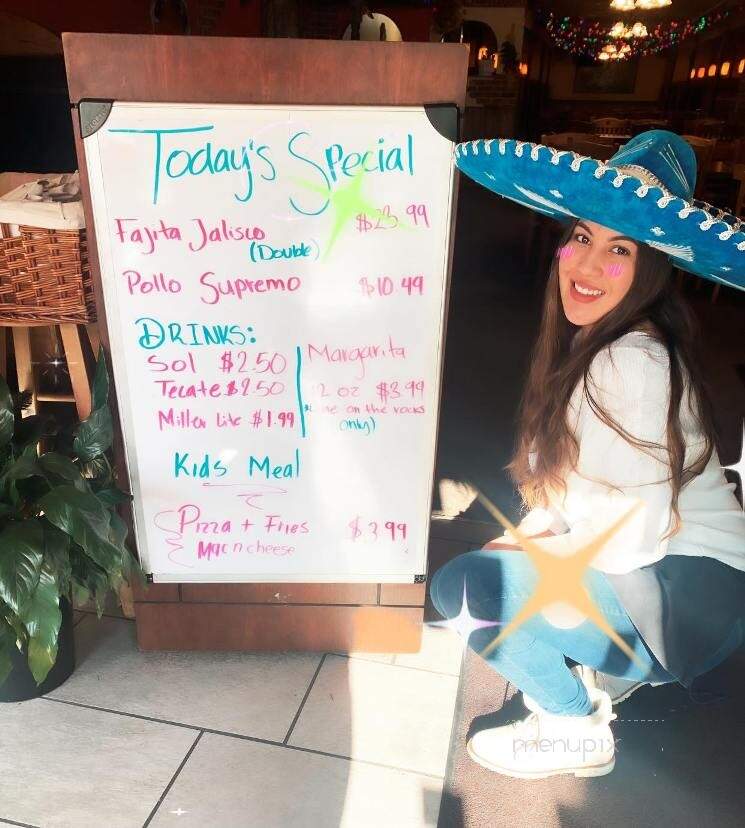 Today's Special
Fajita Jalisco $23.99
(Double)
Pollo Supremo $10.49
DRINKS:
Sol $2.50
Tecate $2.50
Miller Lite $1.99
Margarita
12 oz $3.99
on the rocks
only)
Kids Meal
Pizza + Fries $3.99
Mac n cheese
menupix